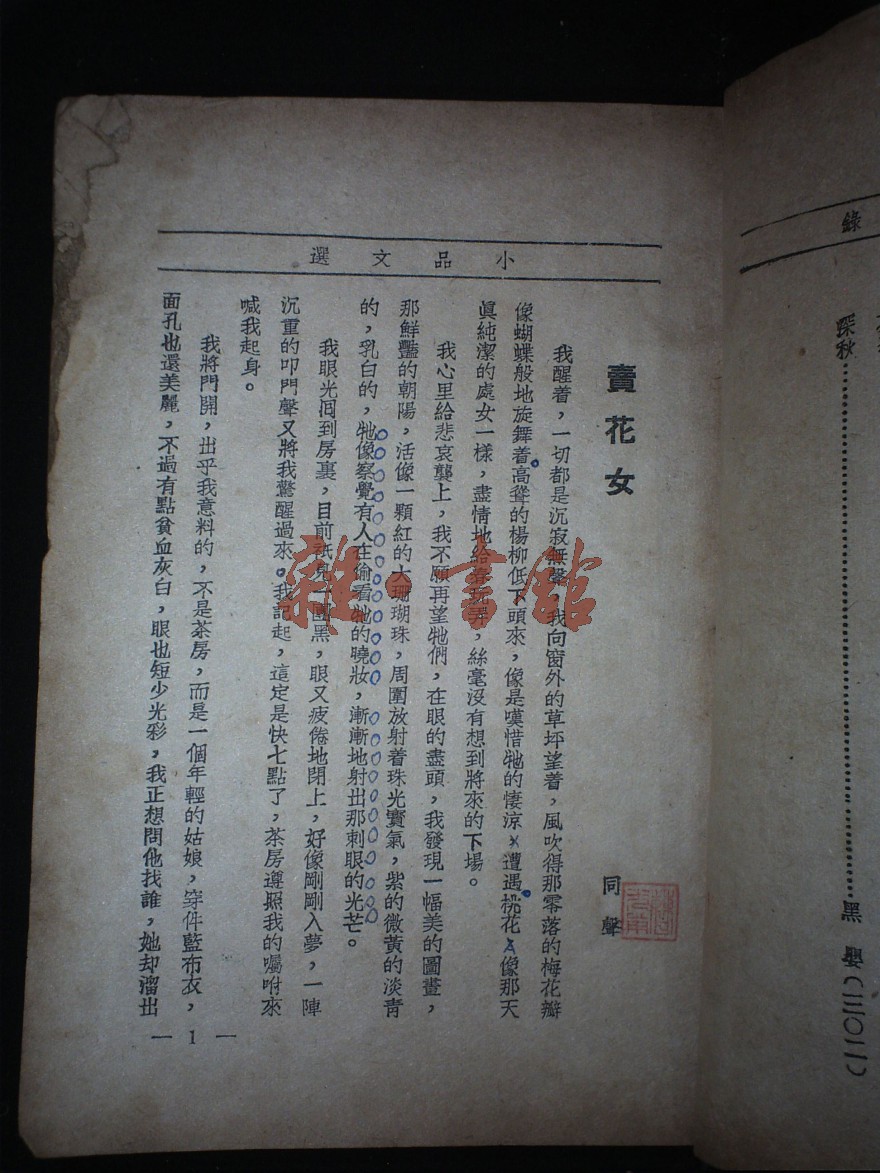 小品文選
賣花女
同聲
我醒着，一切都是沉寂無聲，我向窗外的草坪望着，風吹得那零落的梅花瓣
像蝴蝶般地旋舞着高聳的楊柳低下頭來，像是嘆惜牠的悽涼遭遇桃花像那天
眞純潔的處女一樣，盡情地給春玩弄，絲毫沒有想到將來的下場。
我心里給悲哀襲上，我不願再望牠們，在眼的盡頭，我發現一幅美的圖畫，
那鮮豔的朝陽，活像一顆紅的大珊瑚珠，周圍放射着珠光寶氣，紫的微黃的淡青
的，乳白的，牠像察覺有人在偷看牠的曉妝，漸漸地射出那刺眼的光芒。
我眼光洄到房裏，目前祇見一團黑，眼又疲倦地閉上，好像剛剛入夢，一陣
沉重的叩門聲又將我驚醒過來。我記起，這定是快七點了，茶房遵照我的囑咐來
喊我起身。
我將門開，出乎我意料的，不是茶房，而是一個年輕的姑娘，穿件藍布衣，
面孔也還美麗，不過有點貧血灰白，眼也短少光彩，我正想問他找誰，她却溜出
— 1 —
錄
探秋……黑
雜·書館